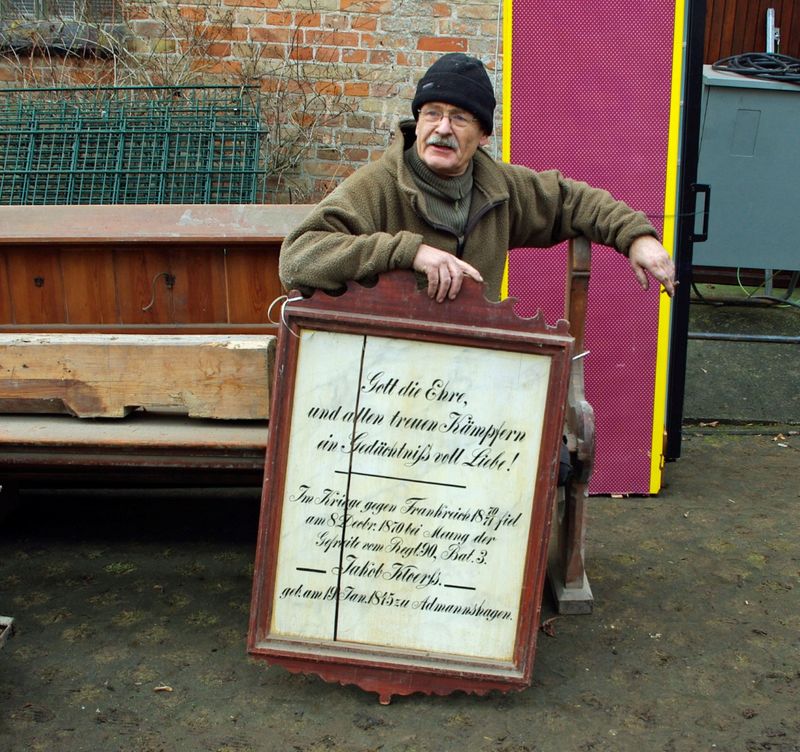 Gott die Ehre,
und allen treuen Kämpfern
ein Gedächtniß voll Liebe!
Im Kriege gegen Frankreich 18 70/71 fiel
am 8 Decbr. 1870 bei Meung der
Gefreite vom Regt. 90, Bat. 3.
Jakob Kloerss.
geb. am 19 Jan. 1845 zu Admannshagen.